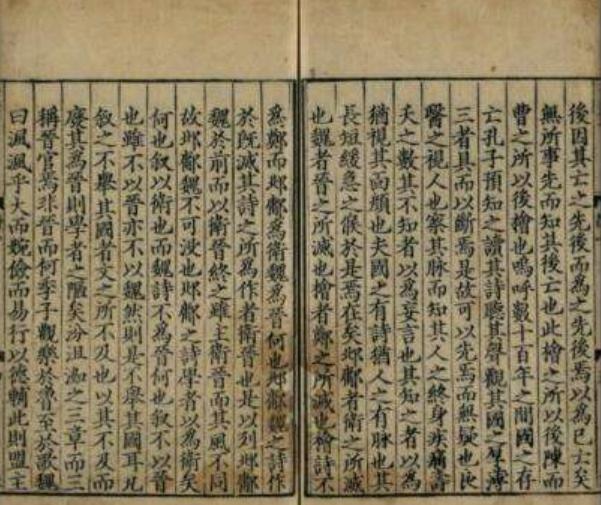 後因其亡之先後而為之先後焉以為已亡矣
無所事先而知其後亡也此檜之所以後陳而
曹之所以後檜也嗚呼數十百年之間國之存
亡孔子預知之讀其詩聽其聲觀其國之厚薄
三者具而以斷焉是故可以先焉而無疑也
醫之視人也察其脉而知其人之終身疾痛壽
夭之數其不知者以為妄言也其知之者以為
猶視其面顏也夫國之有詩猶人之有脉也其
長短緩急之候於是焉在矣邶鄘者衛之所滅
也魏者晉之所滅也檜者鄭之所滅也檜詩不
為鄭而邶鄘為衛魏為晉何也邶鄘之詩作
於既滅其詩之所為作者衛晉也是以列邶鄘
魏於前而以衛晉終之雖主衛晉而其風不同
故邶鄘魏不可沒也邶鄘之詩學者以為衛矣
何也敘以衛也而魏詩不為晉何也敘不以晉
也雖不以晉亦不以魏然則是不舉其國耳凡
敘之不舉其國者文之所不及也以其不及而
廢其為晉則學者之陋矣汾沮洳之三章而三
稱晉官焉非晉而何季子觀樂於魯至於歌魏
曰渢渢乎大而婉儉而易行以德輔此則盟主